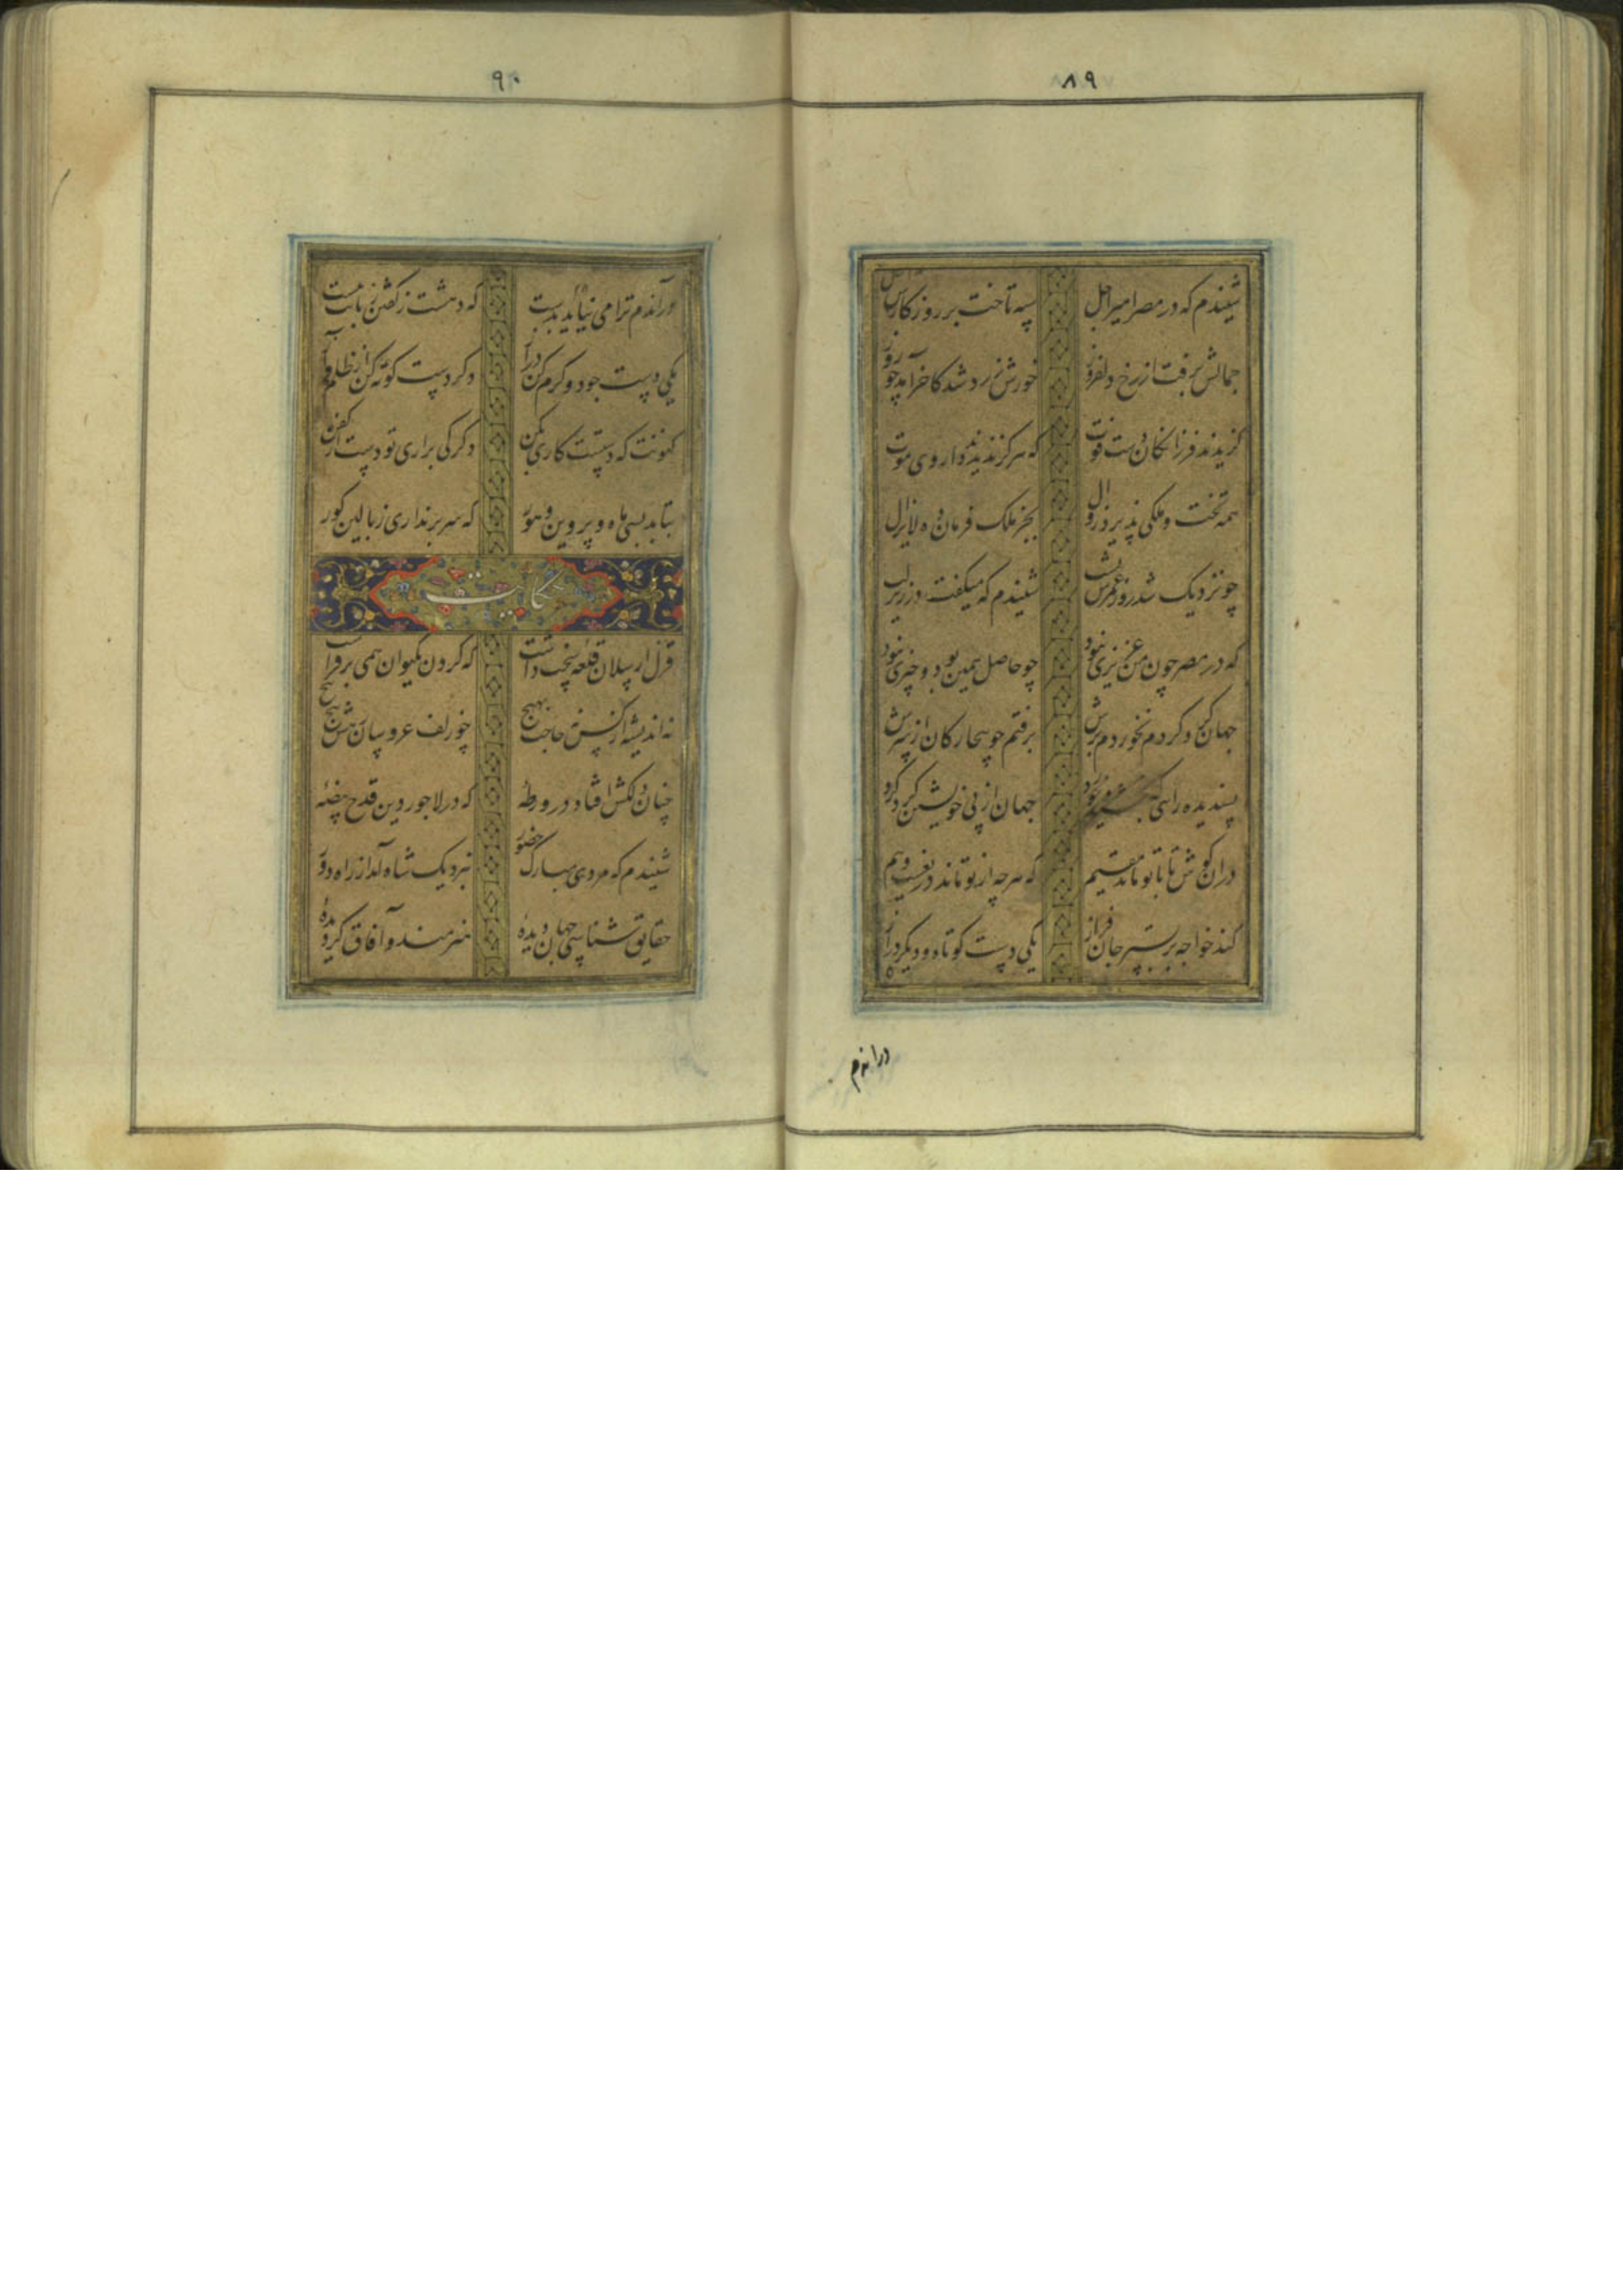 ۸۹
شنیدم که در مصر میر اجل سپه تاخت بر روزکارش اجل
جمالش برفت از رخ دلفروز خورش زرد شد کاخر آمد چو روز
کزیدند فرزانکان دست فوت که هرکز ندیدند داروی موت
همه تخت و ملکی پذیرد زوال بجز ملک فرمان ده لایزال
چو نزدیک شد روز عمرش بشب شنیدم که میکفت در زیر لب
که در مصر چون من عزیزی نبود چو حاصل همین بود چیزی نبود
جهان کرد کردم نخوردم برش برفتم چو بیچارکان از سرش
پسندیده رای که بخشید و خورد جهان از پی خویشتن کرد کرد
دران کوش تا با تو ماند مقیم که هرچه از تو ماند دریغست و بیم
کند خواجه بر بستر جان کداز یکی دست کوتاه و دیکر دراز
دراندم
۹۰
درآندم ترا می نیاید بدست که دهشت زکفتن زبانت ببست
یکی دست جود و کرم کن دراز دکر دست کوته کن از ظلم و آز
کنونت که دستست کاری بکن دکر کی براری تو دست از کفن
بتابد بسی ماه و پروین و هور که سر برنداری ز بالین کور
حکایت
قزل ارسلان قلعه سخت داشت که کردن بکیوان همی برفراشت
نه اندیشه از کس نه حاجت بهیچ چو زلف عروسان رهش پیچ پیچ
چنان دلکش افتاد در ورطه که در لاجوردین قدح بیضه
شنیدم که مردی مبارک حضور نبزدیک شاه آمد از راه دور
حقایق شناسی جهان دیده هنرمند و آفاق کردیده